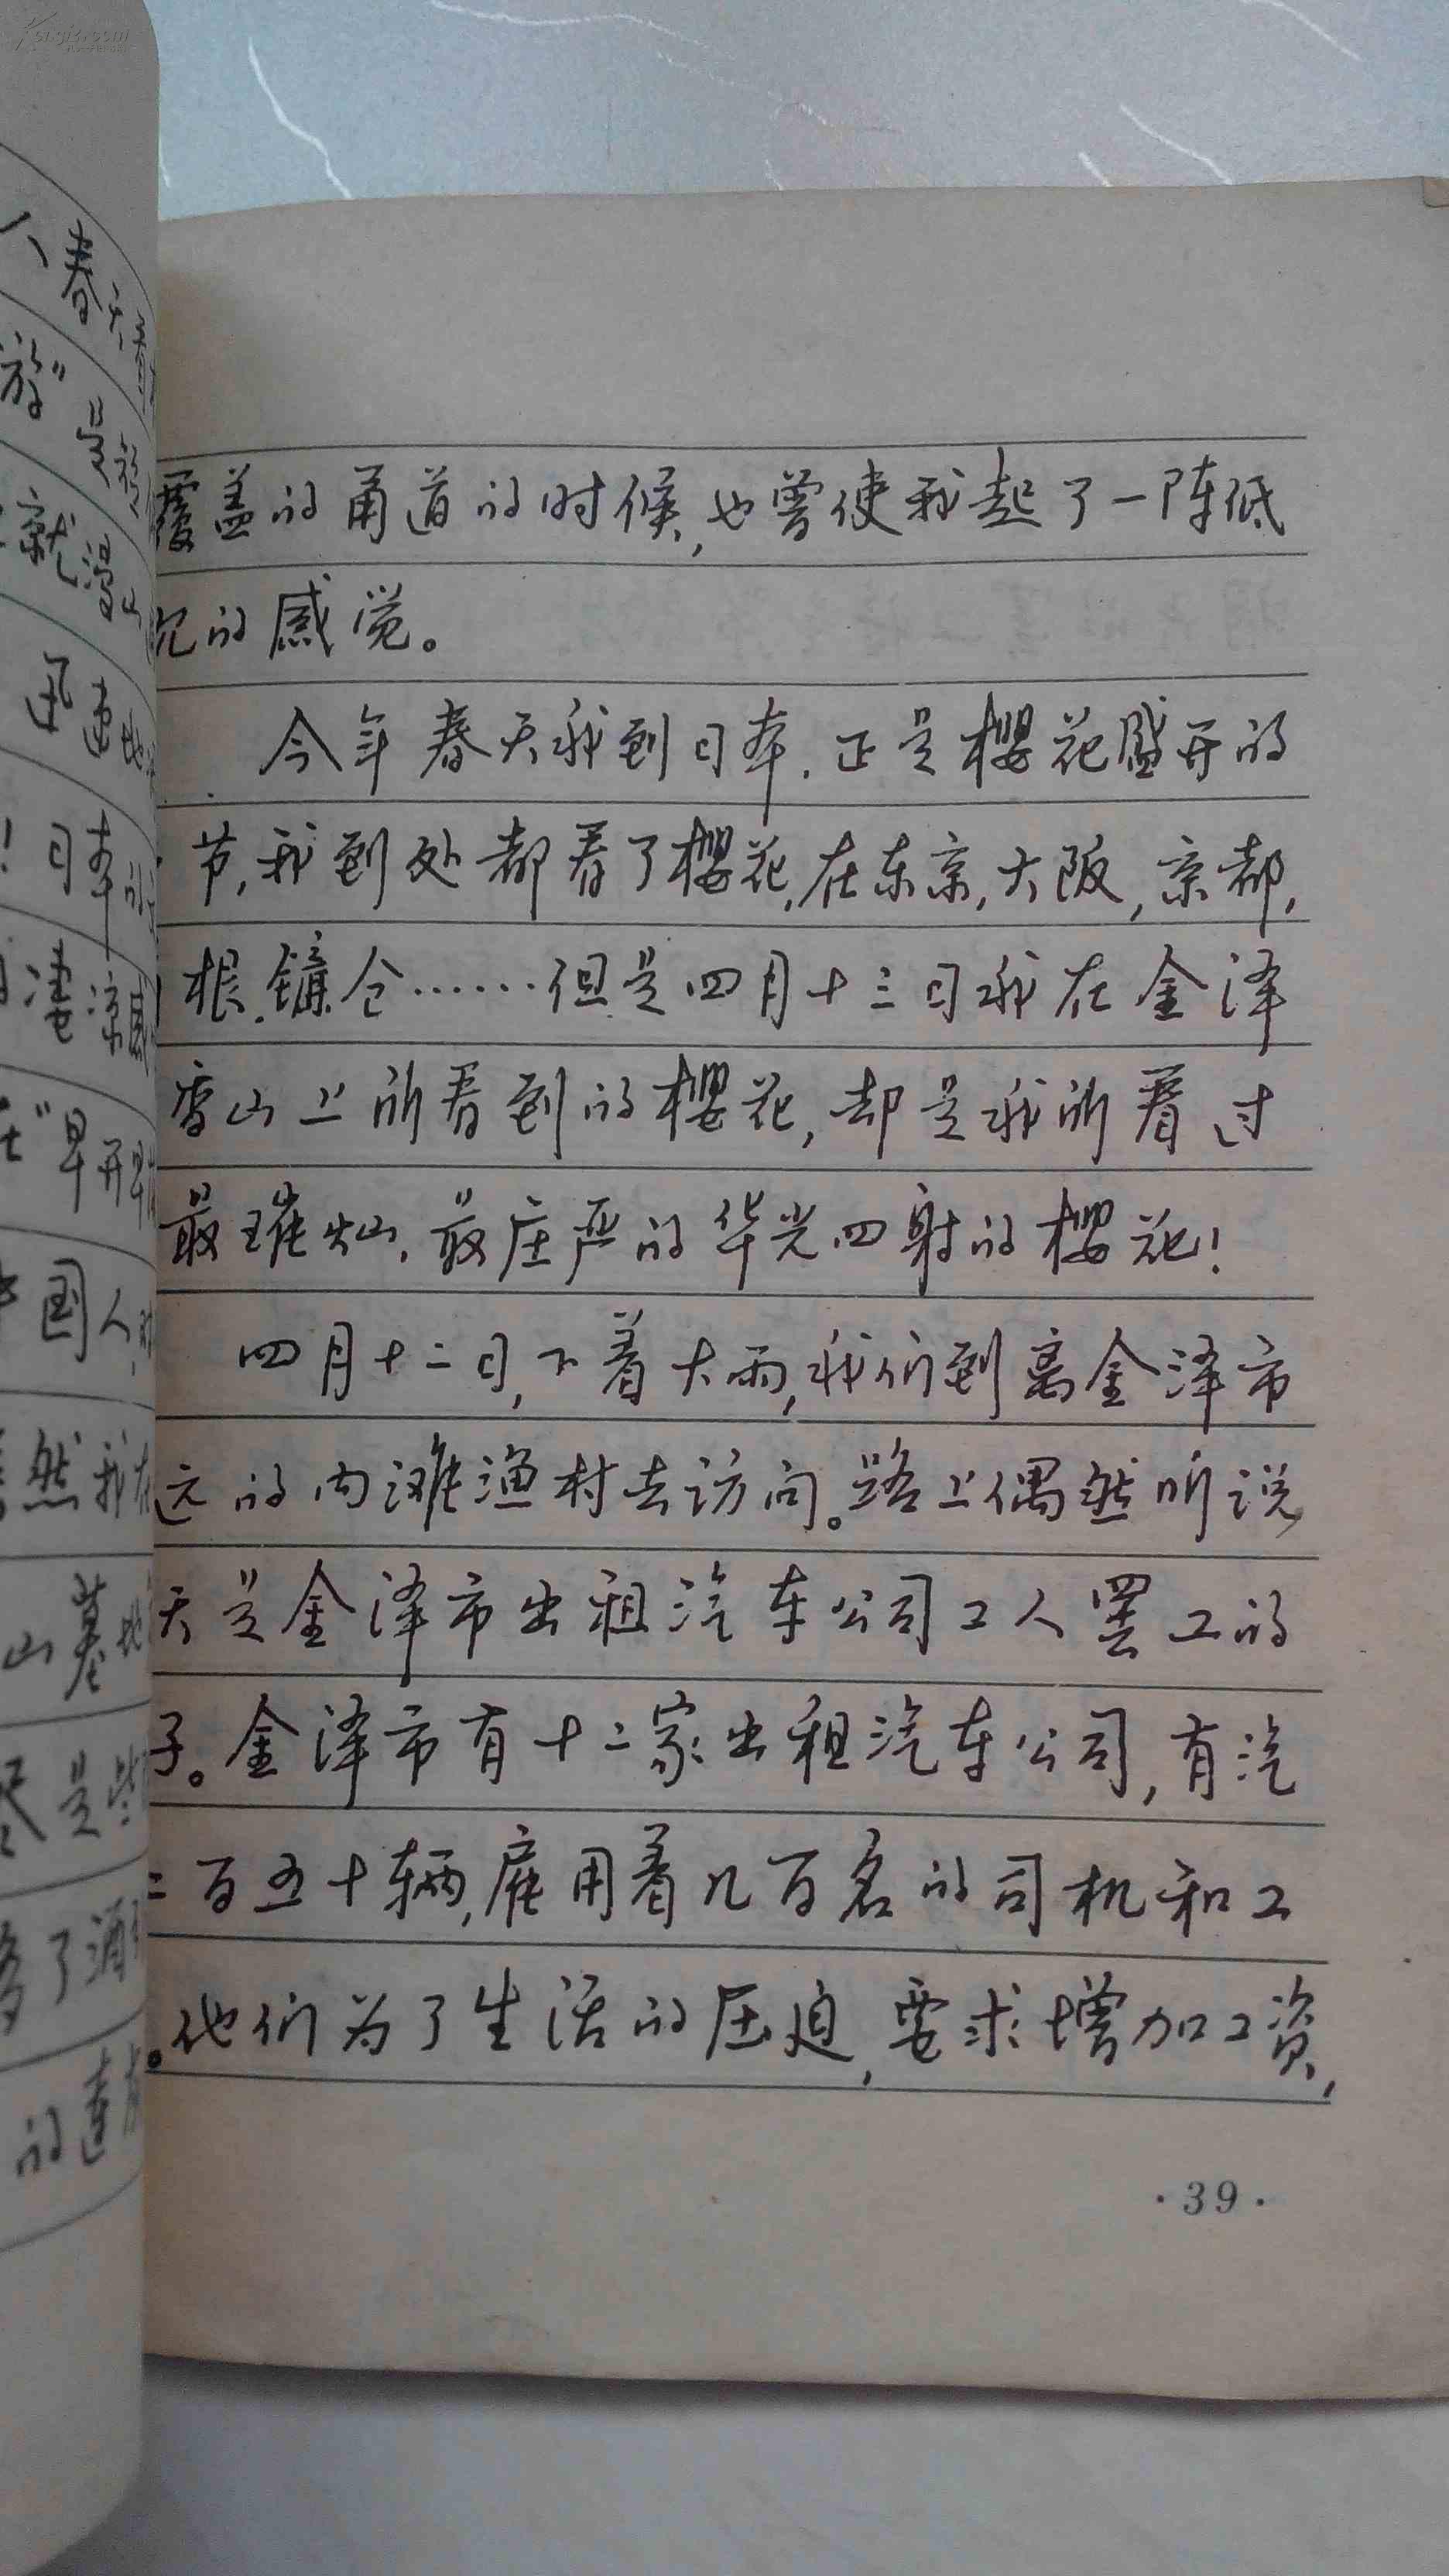 人春天看
游"是
就漫山
迅速地
！日本的
凄凉感
在"早开早
中国人
虽然我在
山墓地
尽是些
多了酒
的建
覆盖的甬道的时候,也曾使我起了一阵低
沉的感觉。
今年春天我到日本,正是樱花盛开的
节,我到处都看了樱花,在东京,大阪,京都,
根,镰仓……但是四月十三日我在金泽
香山上所看到的樱花,却是我所看过
最璀灿,最庄严的华光四射的樱花!
四月十二日,下着大雨,我们到离金泽市
远的内滩渔村去访问。路上偶然听说
天是金泽市出租汽车公司工人罢工的
子。金泽市有十二家出租汽车公司,有汽
二百五十辆,雇用着几百名的司机和工
。他们为了生活的压迫,要求增加工资,
·39·